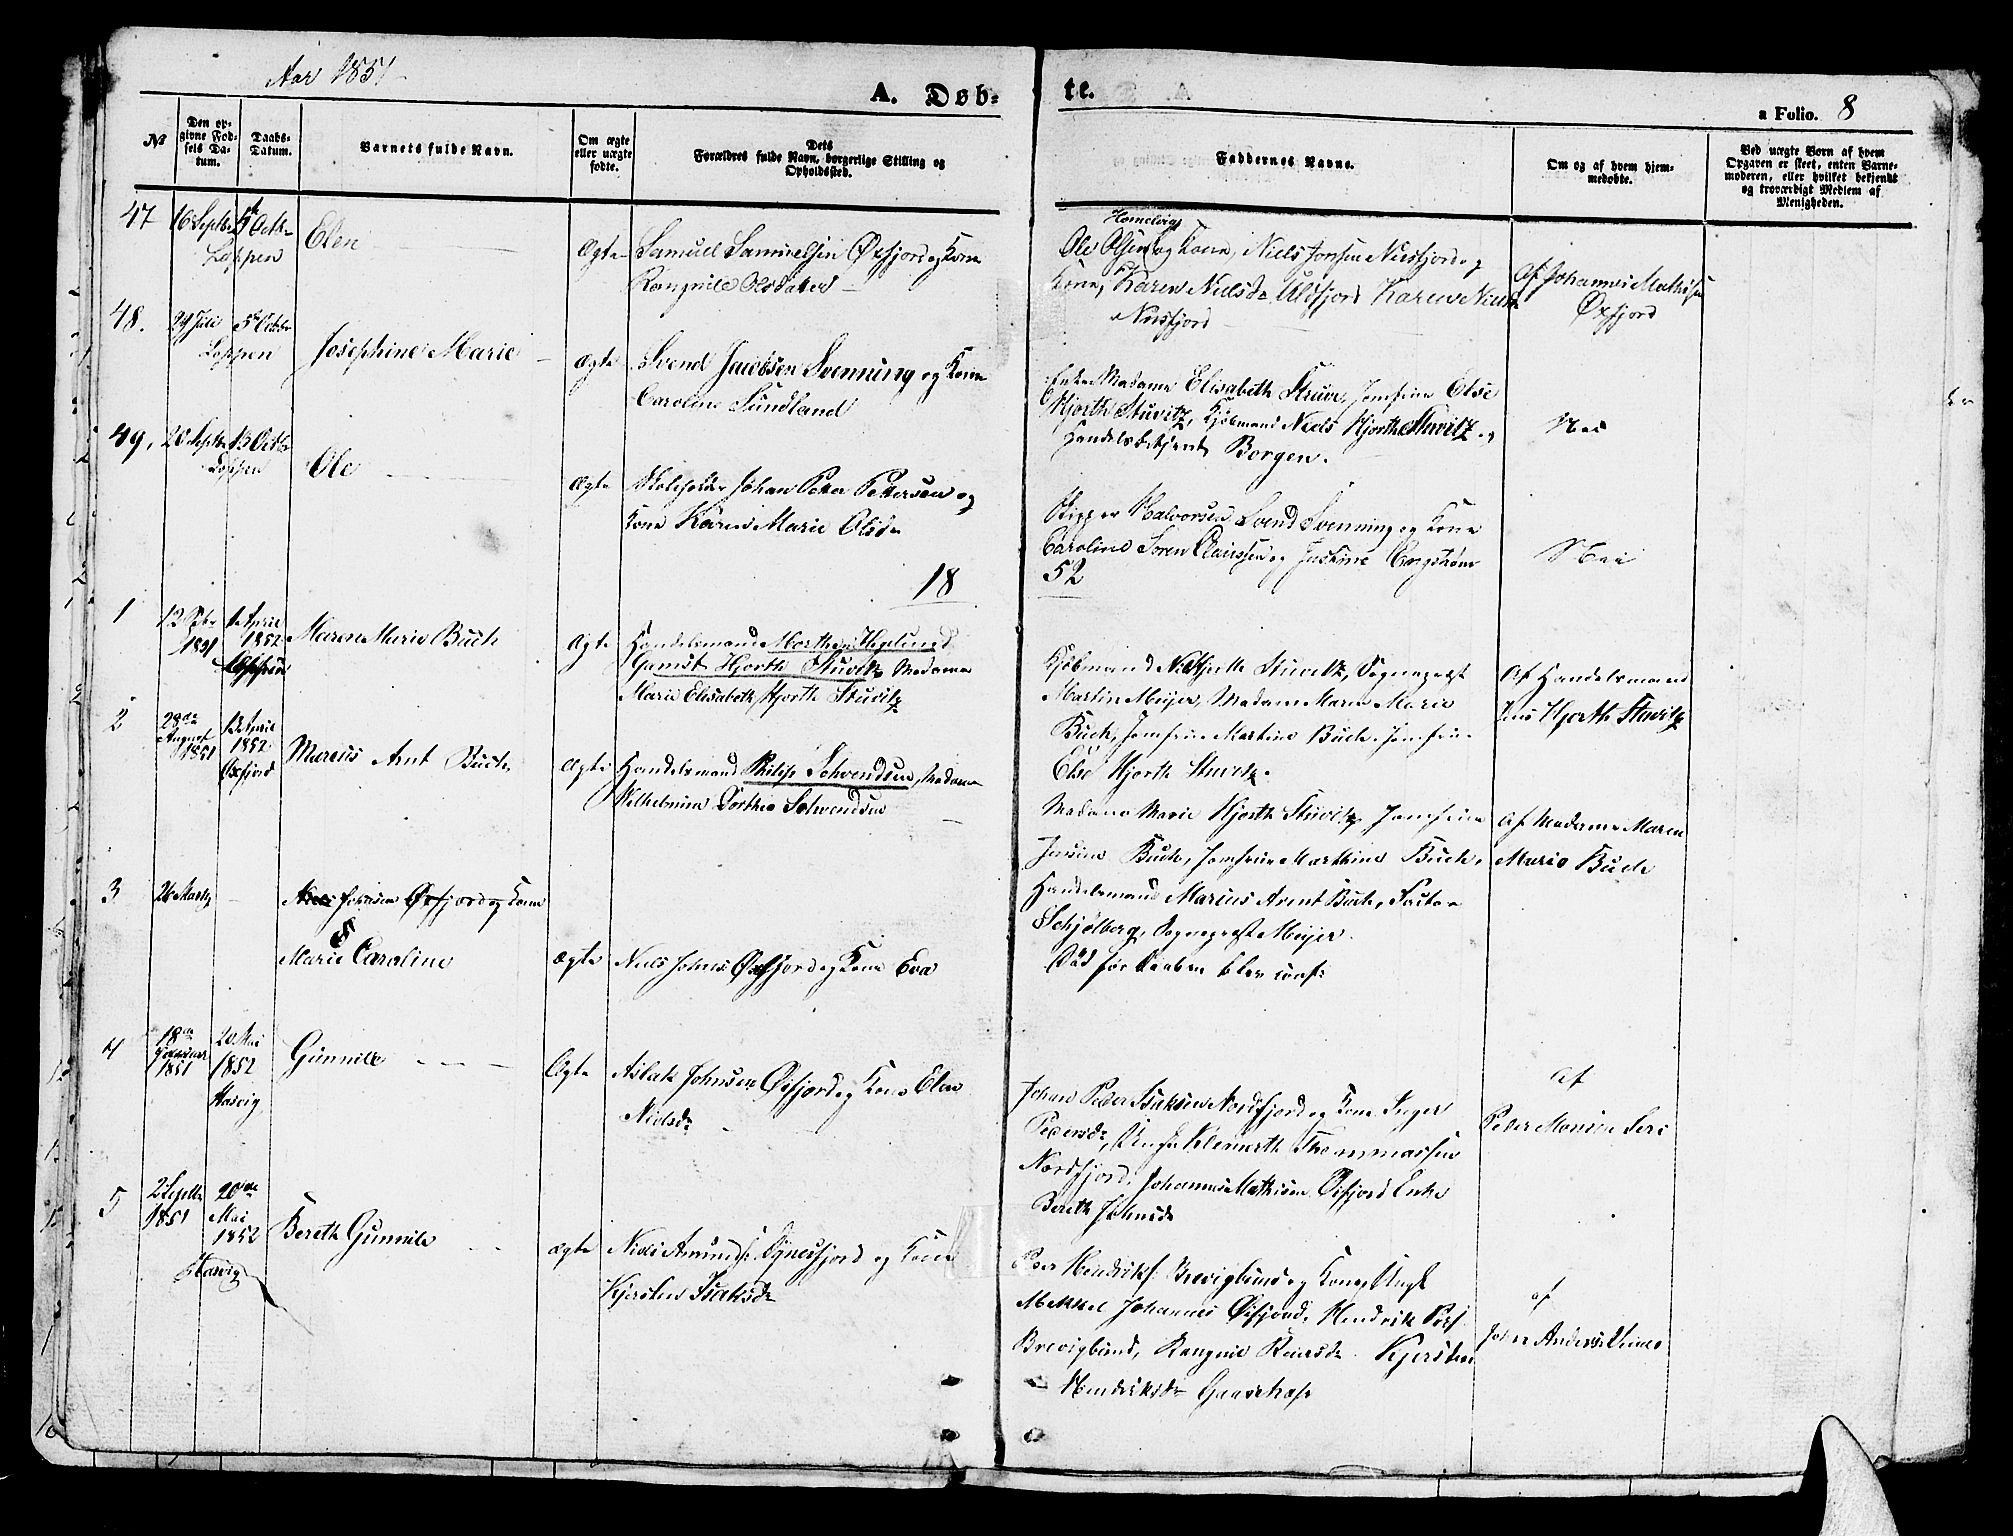 Aar 1851
A. Døb-
te.
a Folio. 8
№
Den op-
givne Fød-
sels Da-
tum.
Daabs-
Datum.
Barnets fulde Navn.
Om ægte
eller uægte
fødte.
Dets
Forældres fulde Navn, borgerlige Stilling og
Opholdssted.
Faddernes Navne.
Om og af hvem hjem-
medøbte.
Ved uægte Børn af hvem
Opgaven er skeet, enten Barne-
moderen, eller hvilket bekjendt
og troværdigt Medlem af
Menigheden.
47
16 Septbr
5te Octb
Loppen
Elen
Ægte
Samuel Samuelsen Øxfjord og Kone
Rangnile Olsdatter
Ole Olsen og Kone, Niels Jonsen Nusfjord og
Kone, Karen Nielsdr Ulsfjord Karen Niels
Nusfjord
Af Johannes Mathisen
Øxfjord
48.
29 Juli
5te Octbr
Loppen
Josephine Marie
Ægte
Svend Jacobsen Svenning og Kone
Caroline Sundland
Enke Madame Elisabeth Struve, Jomfrue Else
Hjorth Stuvitz, Kjøbmand Niels Hjorth Stuvitz og
Handelsbetjent Borgen.
Nei
49.
20 Septbr
13 Octbr
Loppen
Ole
Ægte
Skoleholder Johan Peter Pettersen og
Kone Karen Marie Olsdr
Skipper Halvorsen, Svend Svenning og Kone
Caroline Søren Clausen og Engstrøm
Nei
18
52
1
12
1851
1 April
1852
Maren Marie Buch
Ægte
Handelsmand Morthen Hegelund
Gamst Hjorth Stuvitz Madame
Marie Elisabeth Hjorth Stuvitz
Kjøbmand Niels Hjorth Stuvitz, Sognepræst
Martin Meijer, Madame Maren Marie
Buch, Jomfrue Martine Buch, Jomfrue
Else Hjorth Stuvitz.
Af Handelsmand
Jens Hjorth Stuvitz
2
28de
August
1851
13 April
1852
Øxfjord
Marcus Arnt Buch
Ægte
Handelsmand Philip Schvendsen, Madame
Vilhelmine Dorthea Schvendsen
Madame Marie Hjorth Stuvitz, Jomfrue
Jensine Buch, Jomfrue Marthine Buch,
Handelsmand Marius Arent Buch, Factor
Schjølberg, Sognepræst Meijer.
Af Madame Maren
Marie Buch
3
26 Marts
Niels Johnsen Øxfjord og Kone
Marie Caroline
Ægte
Niels Johns Øxfjord og Kone Eva
Død før Daaben blev
4
18de
1851
20 Mai
1852
Hasvig
Gunnile
Ægte
Aslak Johnsen Øxfjord og Kone Elen
Nielsdr
Johan Peder Isaksen Nordfjord og Kone Inger
Pedersdr, Klemeth Thommassen
Nordfjord, Johannes Mathisen Øxfjord Enke
Bereth Johnsdr
Af
Peder Monsen
5
2 Septbr
1851
20de
Mai
1852
Hasvig
Bereth Gunnile
Ægte
Niels Amunds. og Kone
Kjersten Isaksdr
Peder Hendriks. Brevigbund og Kone,
Mekkel Johannes Øxfjord, Hendrik Peds.
Brevigbund, Rangnil Kjersten
Hendriksdr
af
Anders